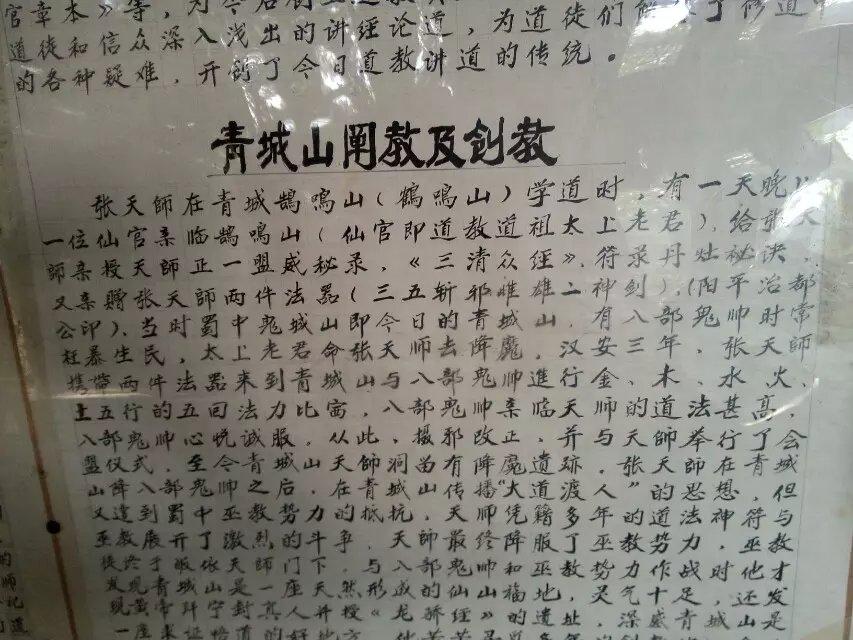 官章本》等,为今后
道徒和信众深入浅出的讲经论道,为道徒们解 了修道中
的各种疑难,开创了今日道教讲道的传统。
青城山阐教及创教
张天師在青城鹄鸣山(鹤鸣山)学道时,有一天晚
一位仙官亲临鹄鸣山(仙官即道教道祖太上老君),给张天
師亲授天師正一盟威秘录,《三清众经》,符录丹灶祕诀,
又亲赠张天師两件法噐(三五斩邪雌雄二神剑),(阳平治都
公印),当时蜀中鬼城山即今日的青城山,有八部鬼帅时常
枉暴生民,太上老君命张天师去降魔,汉安三年,张天師
携带两件法噐来到青城山与八部鬼帅進行金、木、水、火、
土五行的五回法力比 ,八部鬼帅亲临天师的道法甚高,
八部鬼帅心晚诚服,从此,摄邪改正,并与天師举行了会
盟仪式,至今青城山天師洞畄有降魔遗跡,张天師在青城
山降八部鬼帅之后,在青城山传播"大道渡人"的思想,但
又遠到蜀中巫教势力的抵抗,天师凭籍多年的道法神符与
巫教展开了激烈的斗争,天師最终降服了巫教势力,巫教
徒终于皈依天師门下,与八部鬼帅和巫教势力作战时他才
发现青城山是一座天然形成的仙山福地,灵气十足,还发
现黄帝拜宁封真人并授《龙骄经》的遗址,深感青城山是
一座 的好地方
的
师